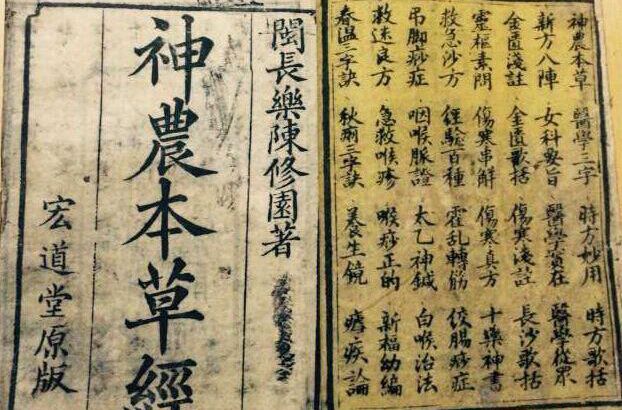 神農本草 醫學三字 時方妙用 時方歌括
新方八陣 女科要旨 醫學實在 醫學從眾
金匱淺註 金匱歌括 傷寒淺註 長沙歌括
靈樞素問 傷寒串解 傷寒真方 十藥神書
救急沙方 經驗百種 霍乱轉筋 絞腸痧症
吊脚痧症 咽喉脈證 太乙神鍼 白喉治法
救迷良方 急救喉疹 喉痧正的 新福幼編
春温三字訣 秋三字訣 養生鏡 疾論
閩長樂陳修園著
神農本草經
宏道堂原版